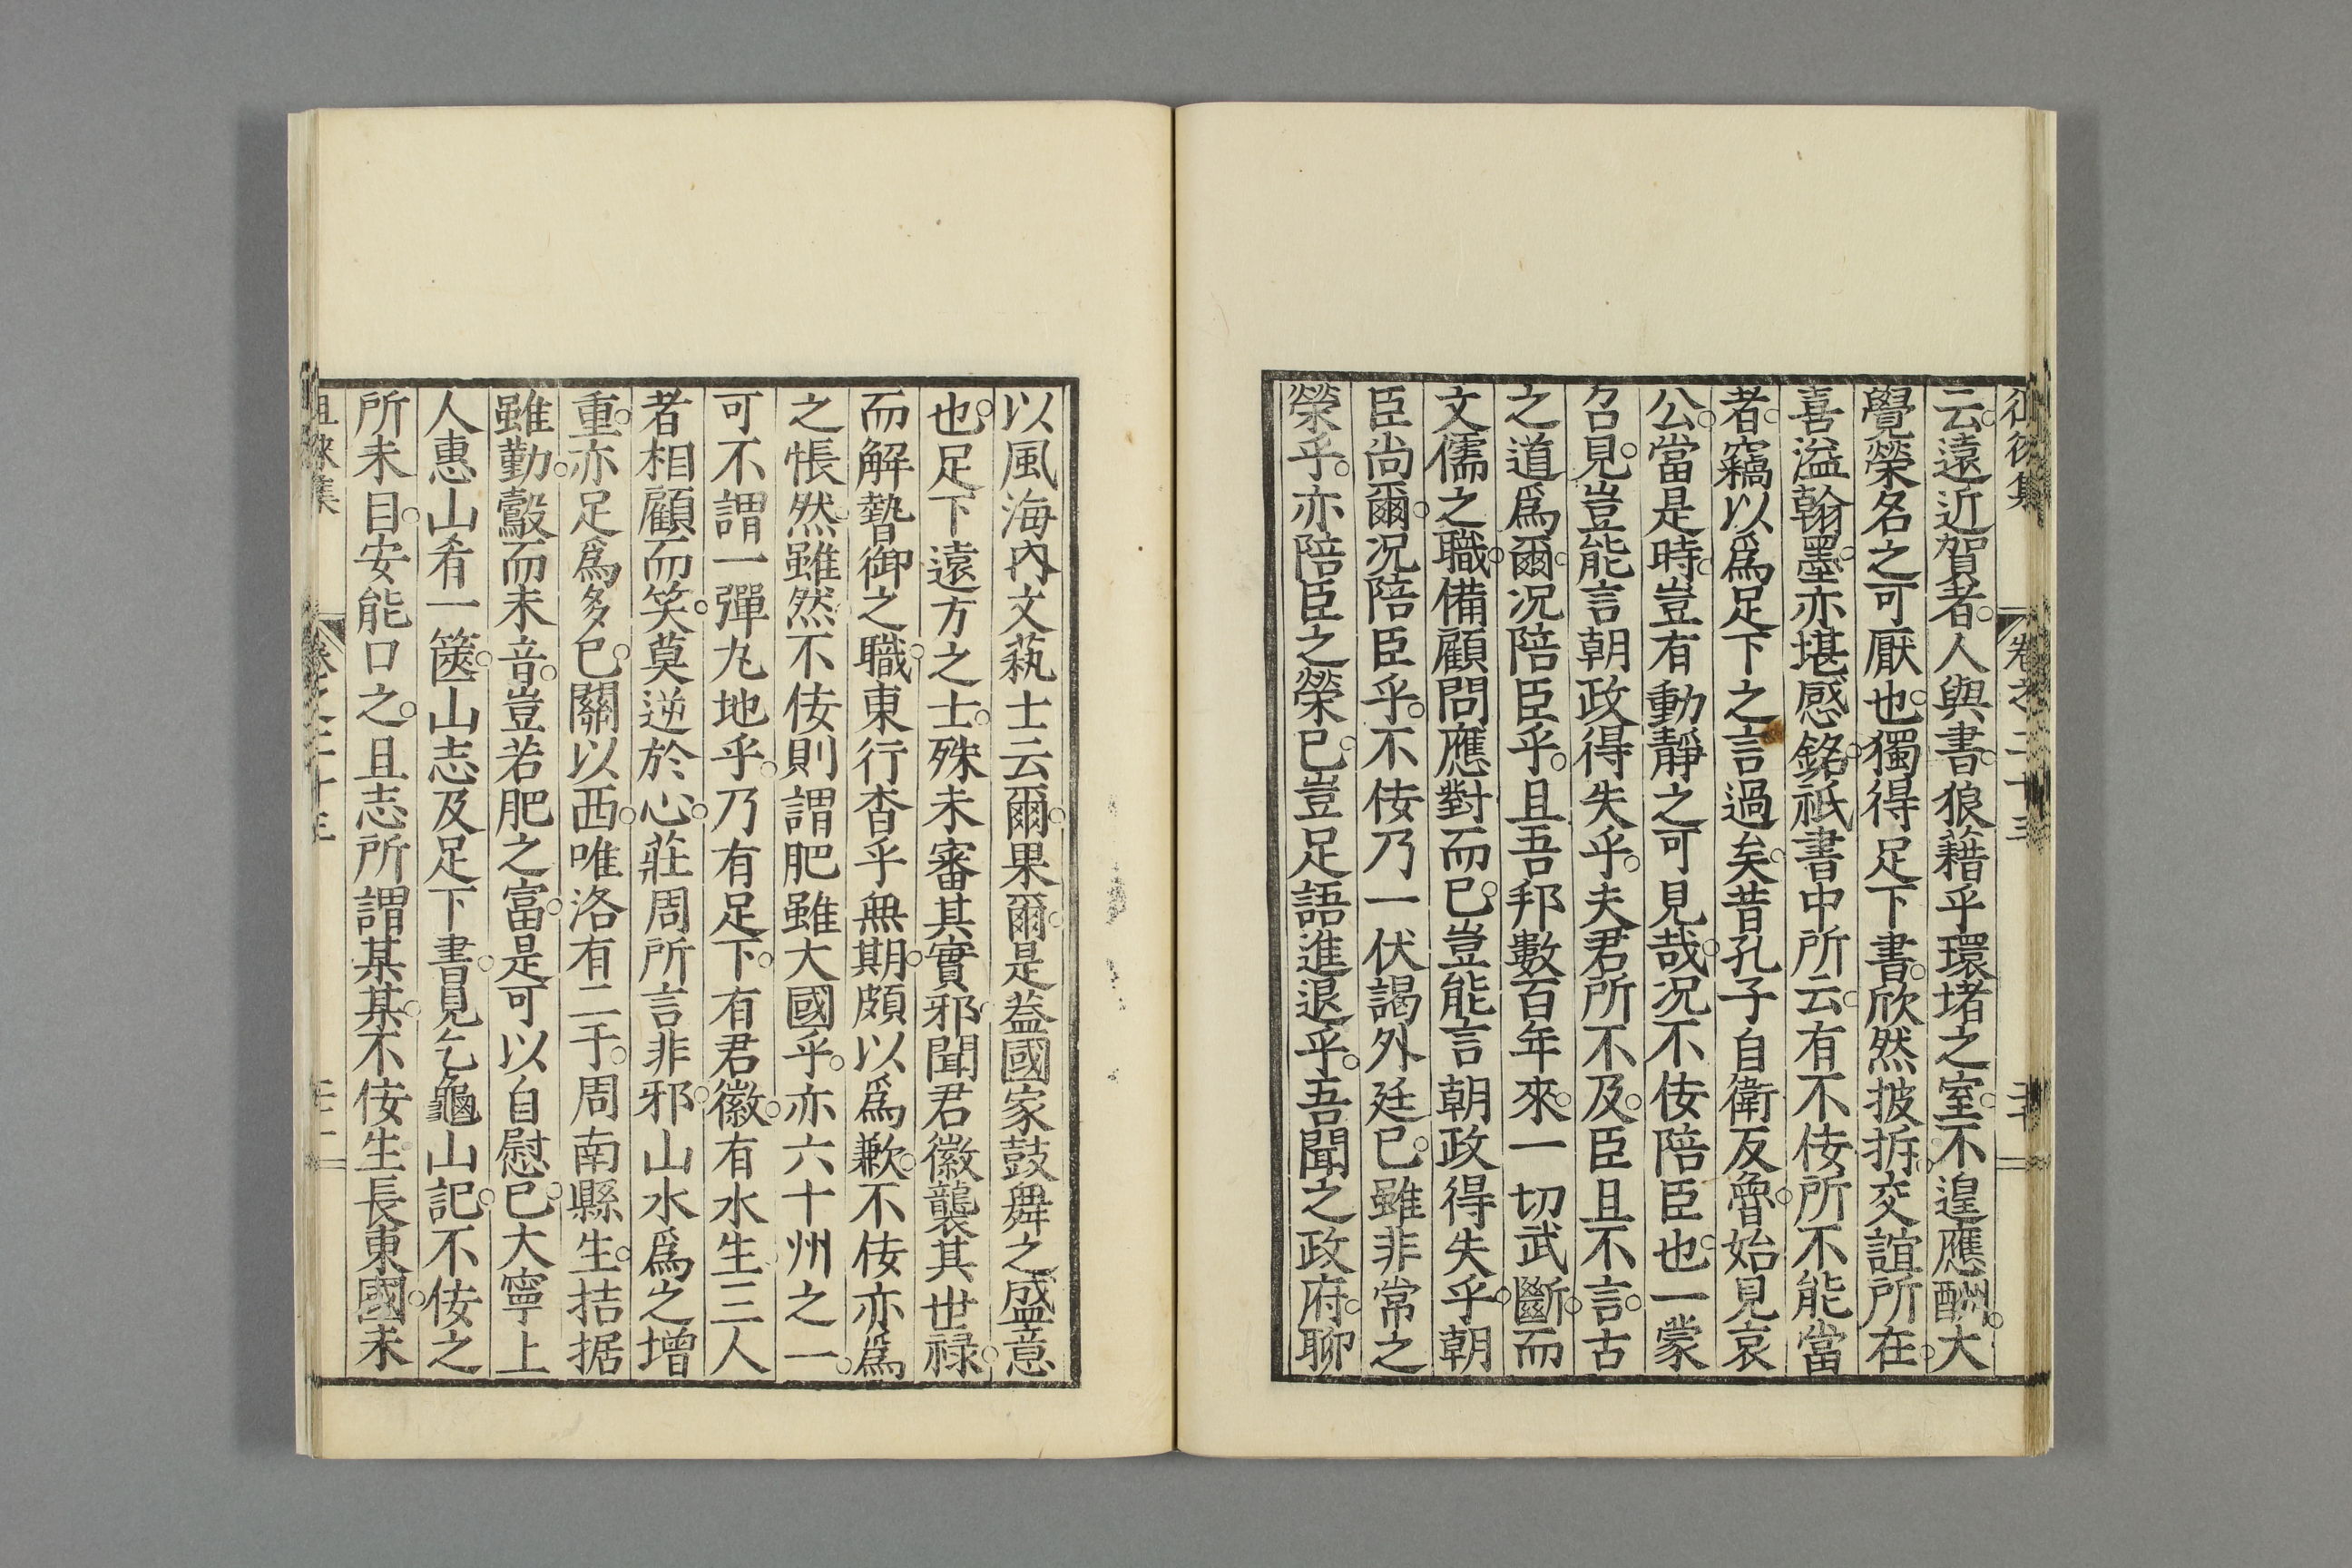 云。遠近賀者。人與書。狼藉乎環堵之室。不遑應酬。大
覺榮名之可厭也。獨得足下書。欣然披拆。交誼所在。
喜溢翰墨。亦堪感銘。祇書中所云。有不佞所不能當
者。竊以爲足下之言過矣。昔孔子自衛反魯。始見哀
公。當是時。豈有動靜之可見哉。况不佞陪臣也。一蒙
召見。豈能言朝政得失乎。夫君所不及。臣且不言。古
之道爲爾。况陪臣乎。且吾邦數百年來。一切武斷。而
文儒之職。備顧問應對而已。豈能言朝政得失乎。朝
臣尚爾。况陪臣乎。不佞乃一伏謁外廷已。雖非常之
榮乎。亦陪臣之榮已。豈足語進退乎。吾聞之政府。聊
以風海內文蓺士云爾。果爾。是葢國家鼓舞之盛意
也。足下遠方之士。殊未審其實邪。聞君徽襲其世禄。
而解贄御之職。東行杳乎無期。頗以爲歉。不佞亦爲
之悵然。雖然。不佞則謂肥雖大國乎。亦六十州之一。
可不謂一彈丸地乎。乃有足下。有君徽。有水生。三人
者相顧而笑。莫逆於心。莊周所言非邪。山水爲之增
重。亦足爲多已。關以西。唯洛有二于。周南縣生。拮据
雖勤。鷇而未音。豈若肥之富。是可以自慰已。大寧上
人惠山肴一篋。山志及足下書。見乞龜山記。不佞之
所未目。安能口之。且志所謂某某。不佞生長東國。未
卷之二十三